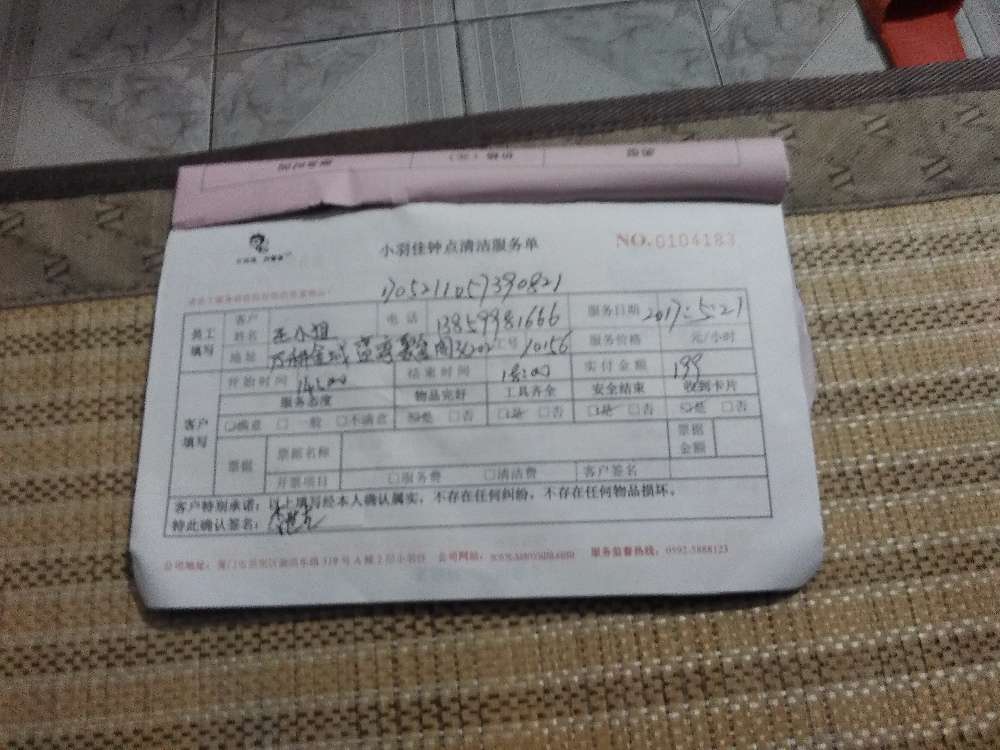 小羽佳钟点清洁服务单 NO.0104183
1705211057390821
员工填写 客户姓名 王小姐 电话 13859981666 服务日期 2017.5.21
地址 302 工号 10156 服务价格 元/小时
开始时间 14:00 结束时间 18:00 实付金额 199
客户填写 服务态度 物品完好 工具齐全 安全结束 收到卡片
□满意 □一般 □不满意 □是 □否 □是 □否 □是 □否 □是 □否
票据 票据名称 票据金额
开票项目 □服务费 □清洁费 客户签名
客户特别承诺：以上填写经本人确认属实，不存在任何纠纷，不存在任何物品损坏。
特此确认签名：
公司地址：厦门市 319号A幢2层小羽佳 公司网站： 服务监督热线：0592-5888123